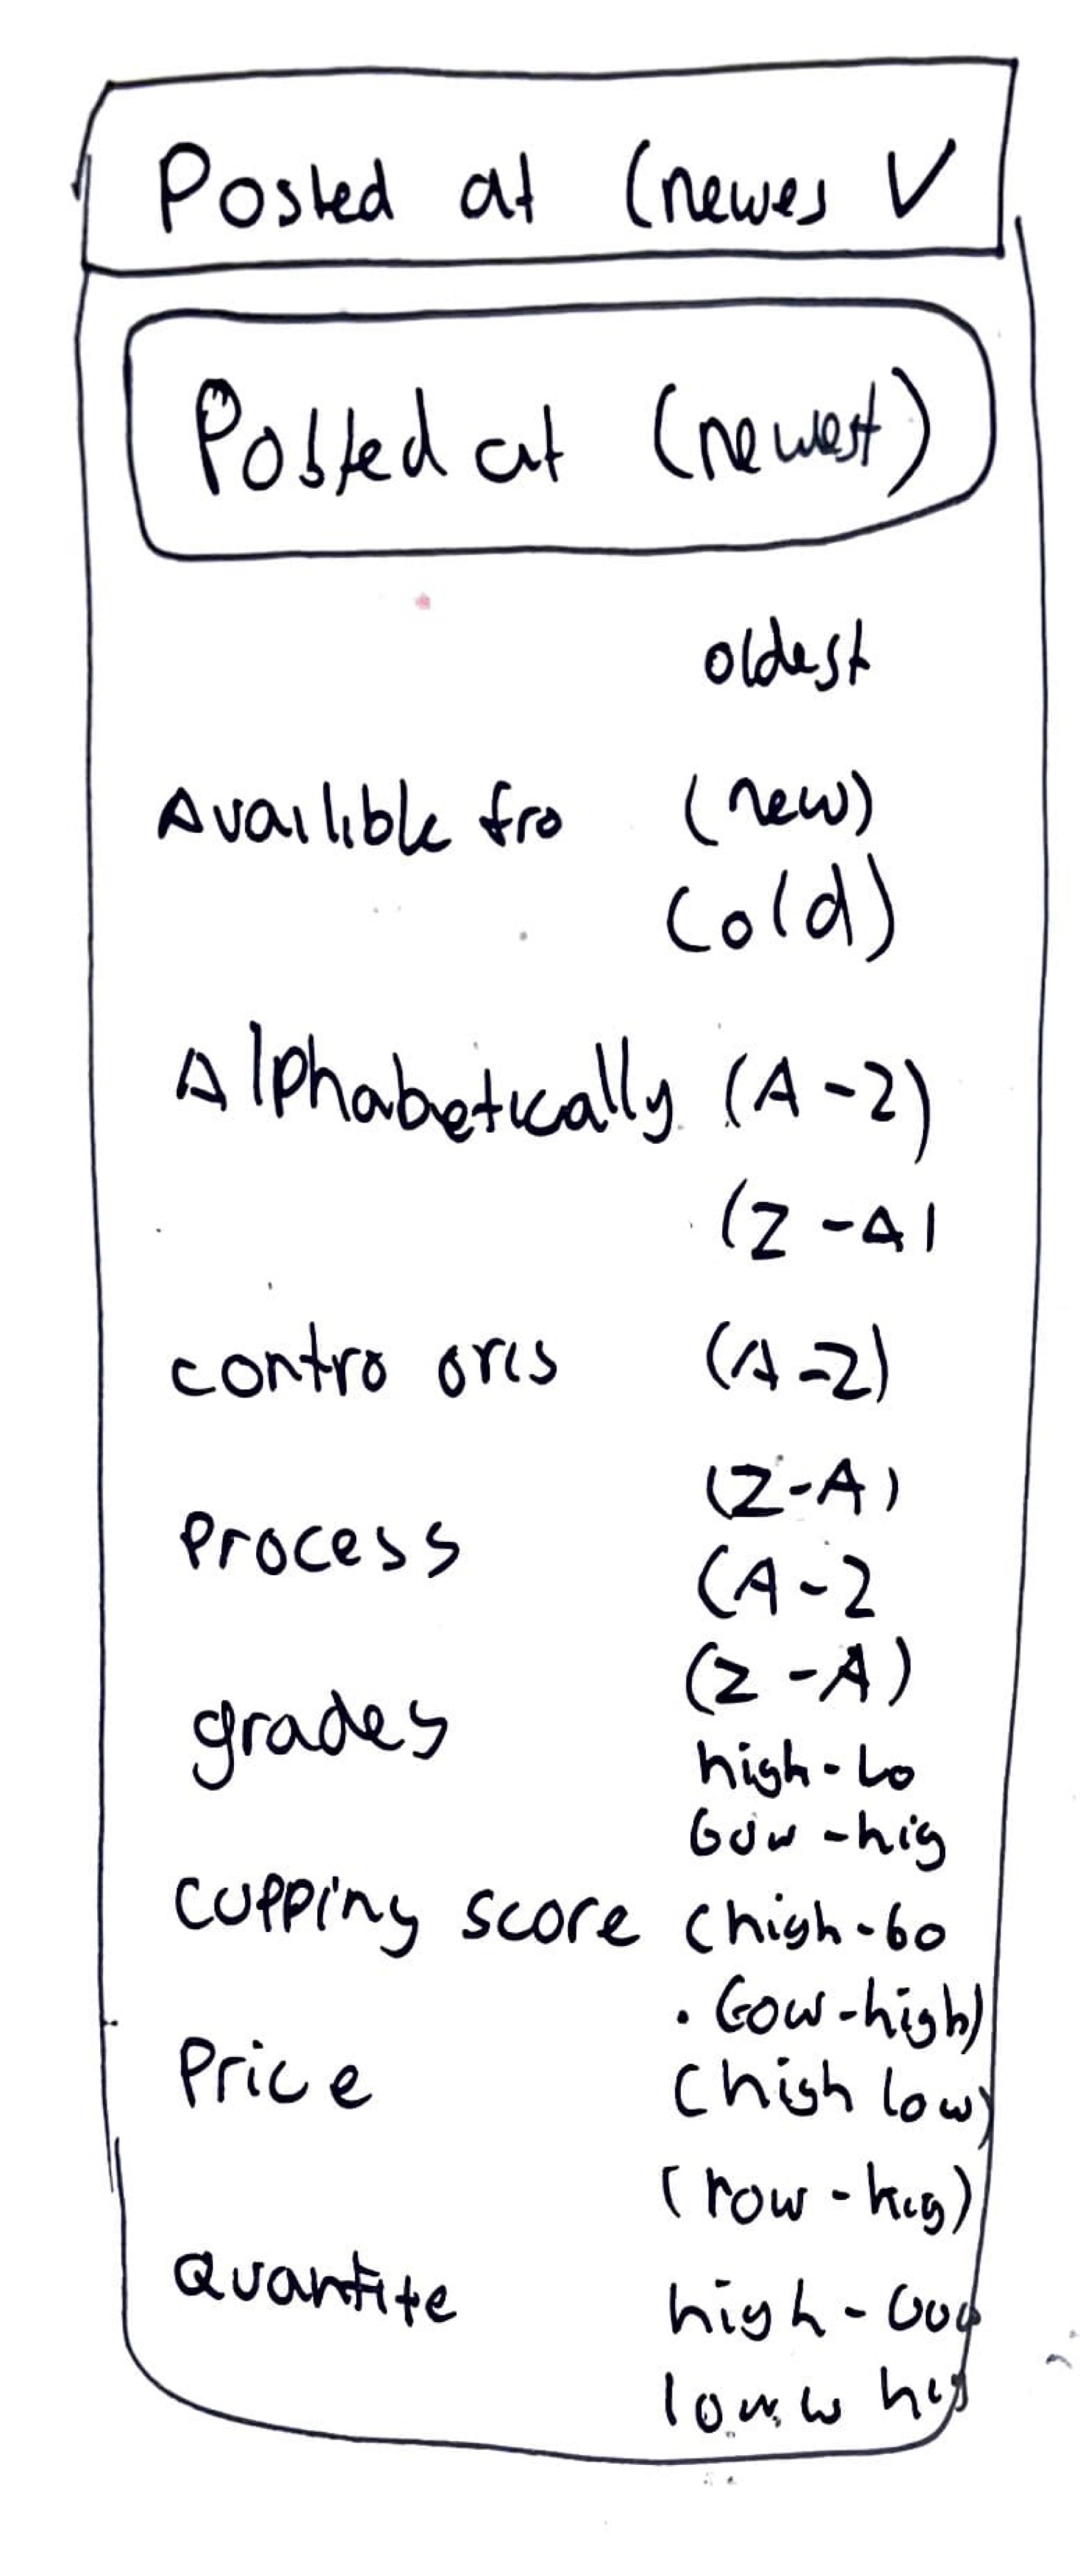 Posted at (newes V
Posted at (newest)
oldest
Availible fro (new)
(old)
Alphabetically (A-Z)
(Z-A)
contro oris (A-Z)
(Z-A)
Process (A-Z
(Z-A)
grades high-Lo
Low-hig
Cupping score (high-lo
(low-high)
Price (high low)
(low-hig)
Quantite high-low
low hig